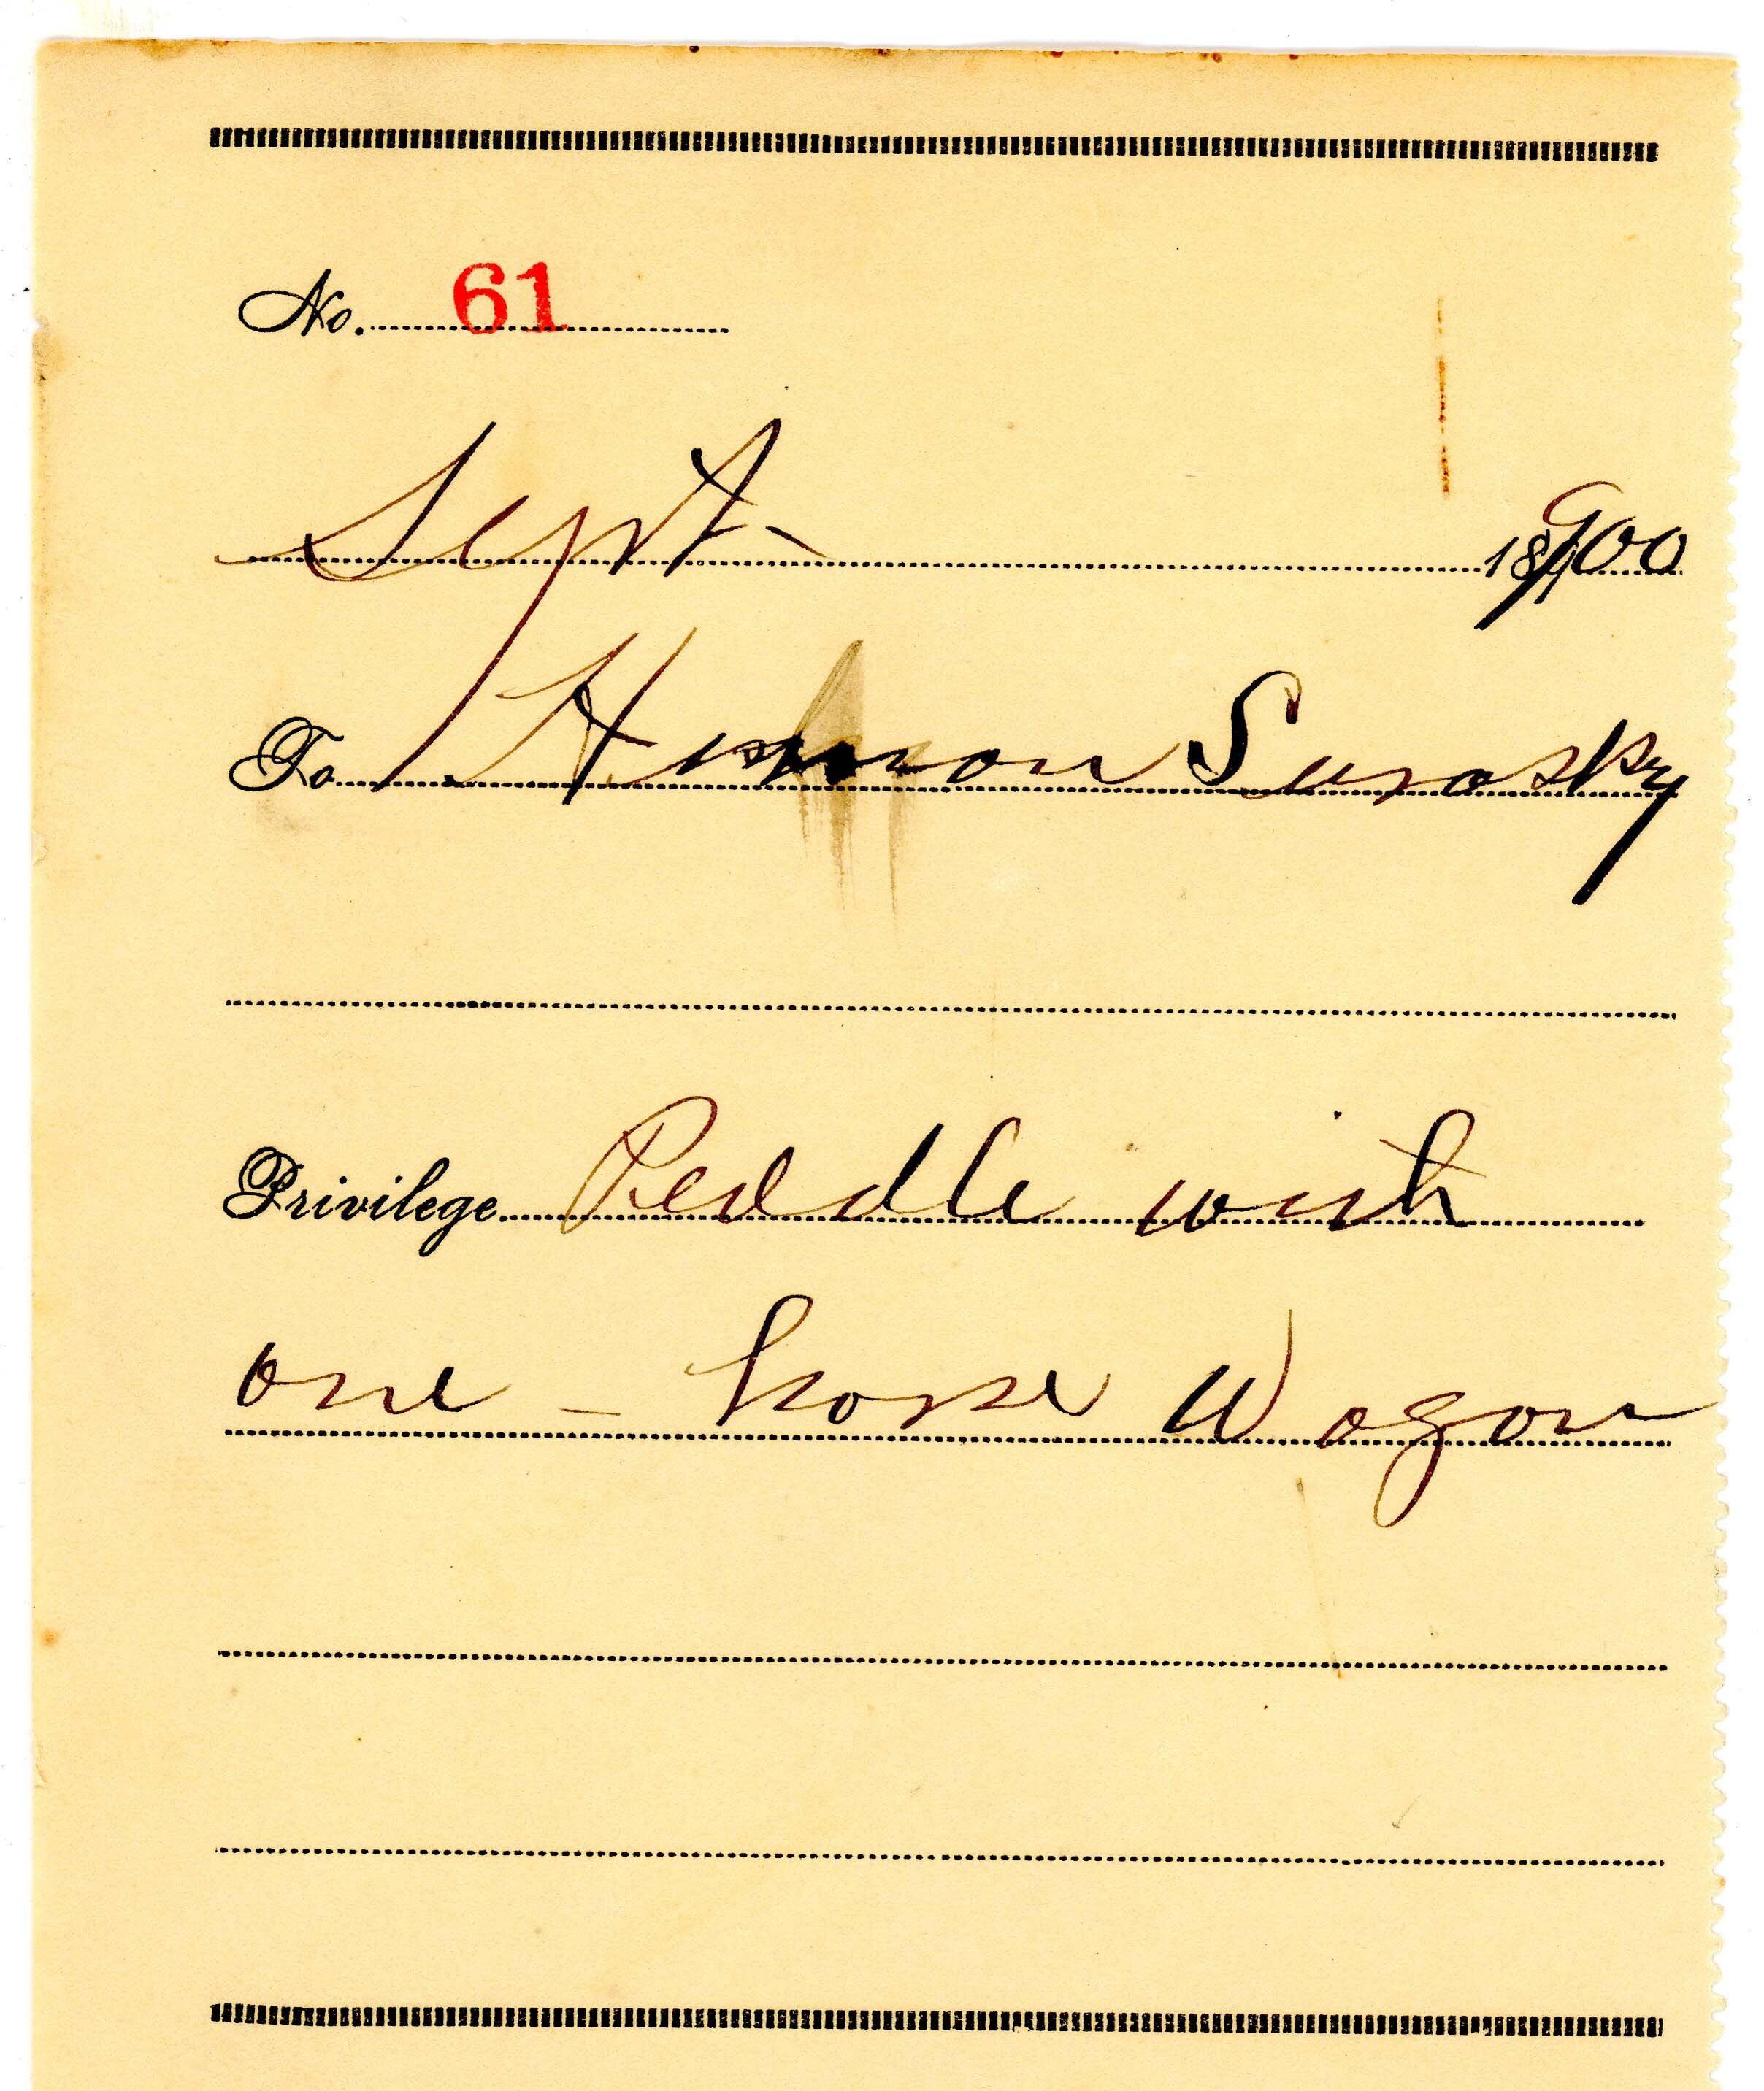 No. 61
Sept - 1900
To Surasky
Privilege Peddle with
one - horse Wagon